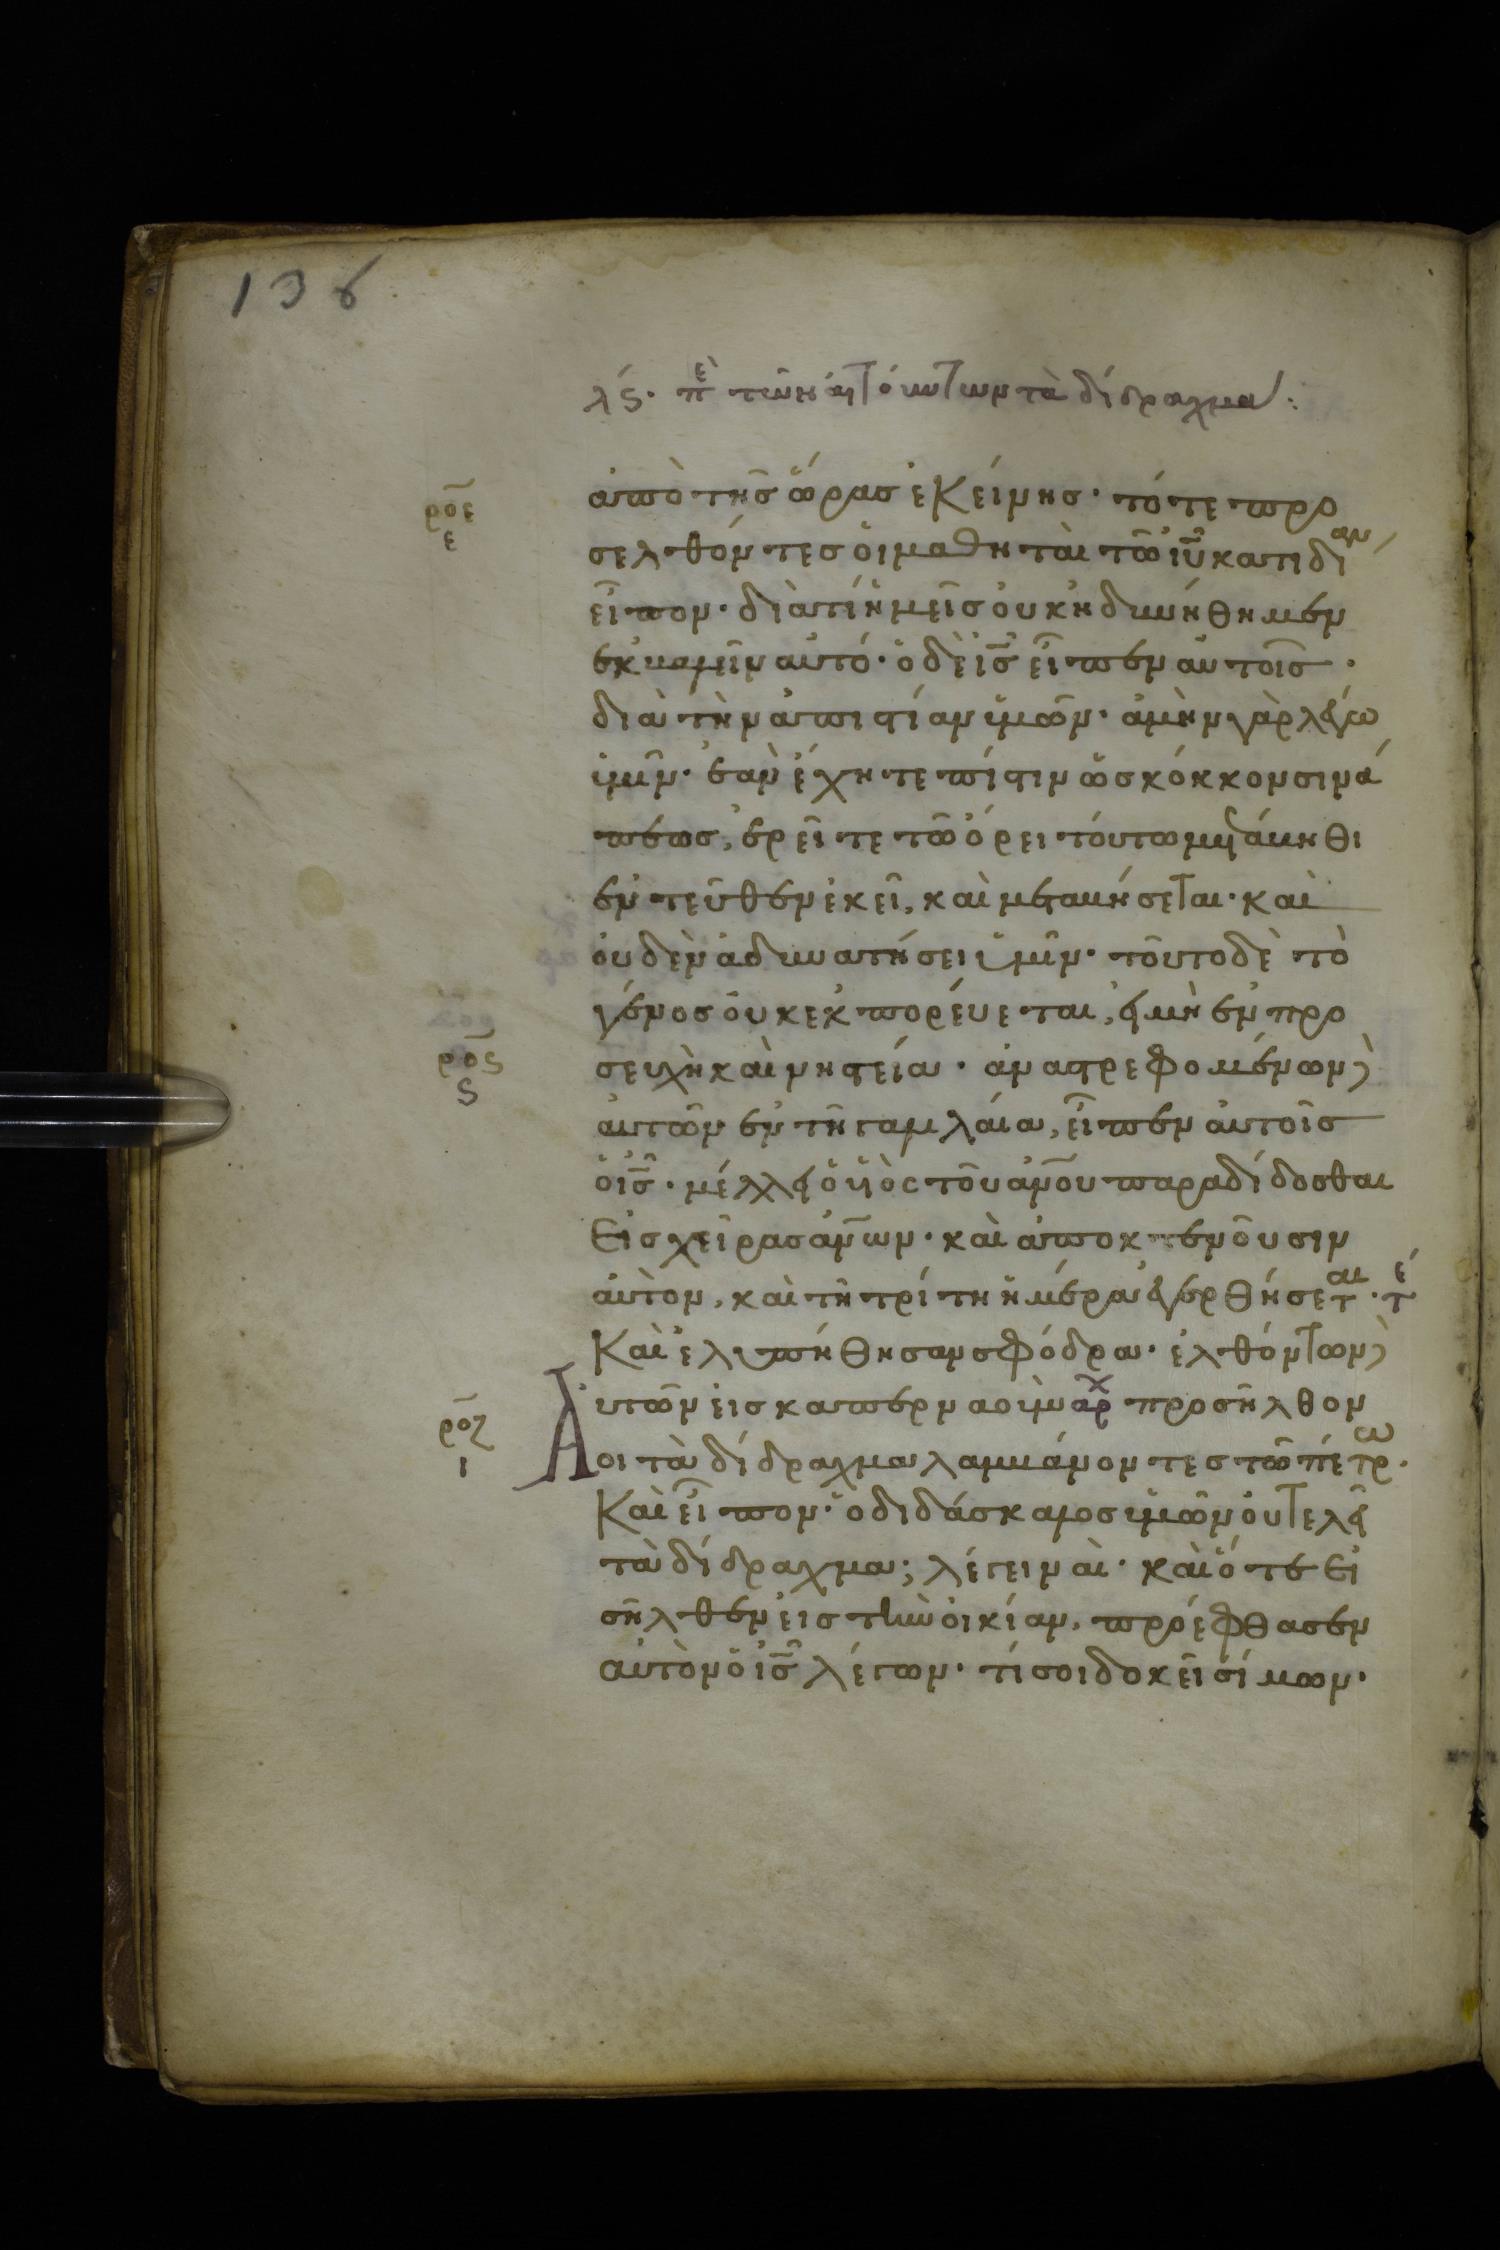 136
λϛ. πὲ τῶν αἰτούντων τὰ δίδραχμα:
ἀπὸ τῆς ὥρας ἐκείνης· τότε προ
ροε
ε
σελθόντες ὁι μαθηταὶ τῶ ἰῦ κατιδίαν
εἶπον· διὰτί ἡμεῖς ὀυκ ἠδυνήθημεν
ἐκβαλεῖν αὐτό· ὁ δὲ ἰς εἶπεν αὐτοῖς·
διὰ τὴν ἀπιστίαν ὑμῶν· ἀμὴν γὰρ λέγω
ὑμῖν· ἐὰν ἔχητε πίστιν ὡς κόκκον σινά
πεως, ἐρεῖτε τῶ ὄρει τόυτω μετάβηθι
ἐντεῦθεν ἐκεῖ, καὶ μεταβήσεται· καὶ
ὀυδὲν ἀδυνατήσει ὑμῖν· τοῦτο δὲ τὸ
γένος ὀυκ ἐκπορέυεται, εἰ μὴ ἐν προ
σευχῆ καὶ νηστεία· ἀναστρεφομένων
ροϛ
ϛ
αὐτῶν ἐν τῆ γαλιλαία, εἶπεν ἀυτοῖς
ὁ ἰς· μέλλει ὁ ὑιὸς τοῦ ἀνου παραδίδοσθαι
εἰς χεῖρας ἀνων· καὶ ἀποκτενοῦσιν
ἀυτὸν, καὶ τῆ τρίτη ἡμέρα ἐγερθήσεται· τέ
Καὶ ἐλυπήθησαν σφόδρα· ἐλθόντων
Ἀυτῶν εἰς καπερναοὺμ ἀρχ προσῆλθον
ροζ
ι
οι τὰ δίδραχμα λαμβάνοντες τῶ πέτρω·
Καὶ εἶπον· ὁ διδάσκαλος ὑμῶν ὀυ τελεῖ
τὰ δίδραχμα; λέγει ναὶ· καὶ ὅτε εἰ
σῆλθεν εἰς τὴν ὀικίαν, προέφθασεν
αὐτὸν ὁ ἰς λέγων· τί σοι δοκεῖ σίμων·